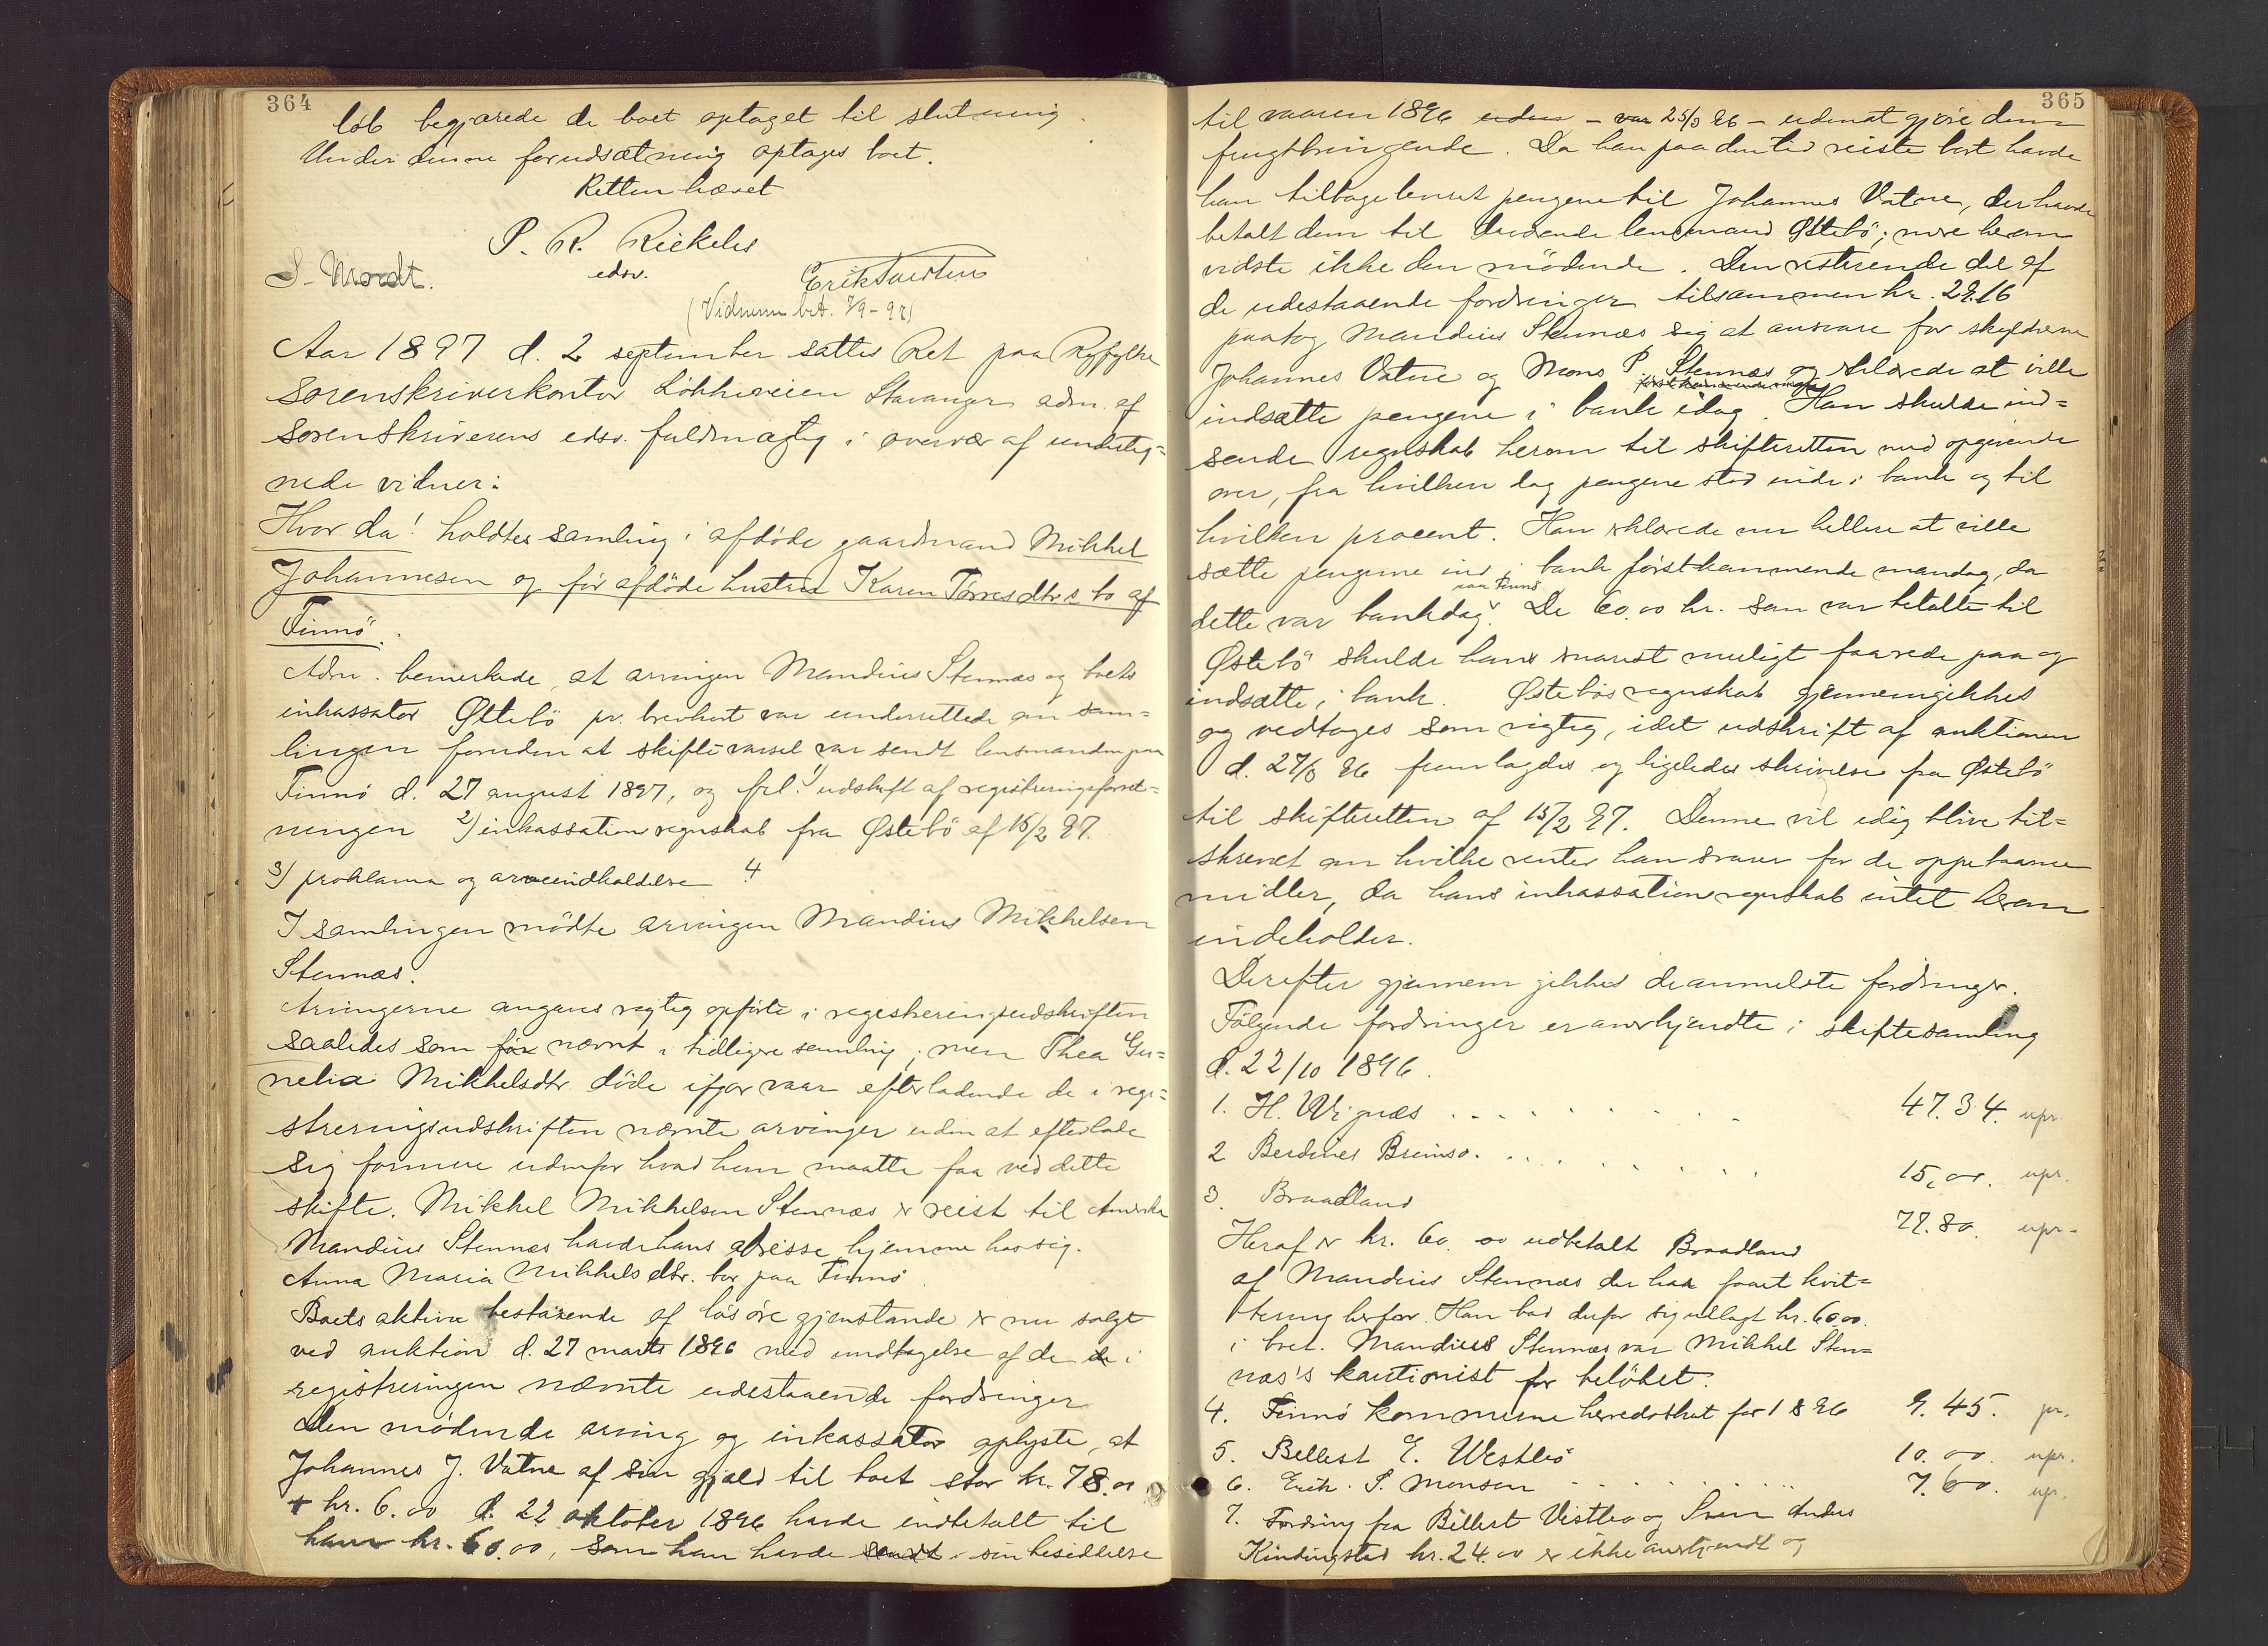 364
løb begjærede de boet optaget til slutning.
Under denne forudsætning optages boet.
Retten hævet
P. R. Riekeles
edsv.
S. Mordt.
(Vidnerne bet. 2/9-97)
Aar 1897 d. 2 september sattes Ret paa Ryfylke
Sorenskriverkontor Løkkeveien Stavanger adm. af
Sorenskriverens edsv. fuldmægtig i overvær af underteg=
nede vidner:
Hvor da! holdtes samling i afdøde gaardmand Mikkel
Johannesen og før afdøde hustru Karen Tørresdtrs bo af
Finnø.
Adm. bemærkede, at arvingen Mandius Stennæs og boets
inkassator Østebö pr. brevkort var underrettede om sam=
lingen foruden at skiftevarsel var sendt lensmanden paa
Finnö d. 27 august 1897, og frl. 1) udskrift af registreringsforret=
ningen 2) inkassationsregnskab fra Østebö af 15/2 97.
3) proklama og arveindkaldelse 4
I samlingen mödte arvingen Mandius Mikkelsen
Stennæs.
Arvingerne angaves rigtig opførte i registreringsudskriften
saaledes som før nævnt i tidligere samling; men Thea Gu=
nelia Mikkelsdtr döde ifjor vaar efterladende de i regi=
streringsudskriften nævnte arvinger uden at efterlade
sig formue udenfor hvad hun maatte faa ved dette
skifte. Mikkel Mikkelsen Stennæs er reist til Amerika
Mandius Stennæs havde hans adresse hjemme hos sig.
Anna Maria Mikkelsdtr. bor paa Finnö.
Boets aktiva bestaaende af løsøre gjenstande er nu solgt
ved auktion d. 27 marts 1896 med undtagelse af de de i
registreringen nævnte udestaaende fordringer
Den mødende arving og inkassator oplyste, at
Johannes J. Vatne af sin gjæld til boet stor kr. 78.00
+ kr. 6.00 d. 22 oktober 1896 havde indbetalt til
ham kr. 60.00, som han havde sendt i sin besiddelse
365
til vaaren 1896 uden - var 25/3 96 - udenat gjöre dem
frugtbringende. Da han paa den tid reiste bort havde
han tilbageleveret pengene til Johannes Vatne, der havde
betalt dem til lensmand Østebö; mere herom
vidste ikke den mödende. Den resterende del af
de udestaaende fordringer tilsammen kr. 29.16
paatog Mandius Stennæs sig at ansvare for skyldnerne
Johannes Vatne og Mons P. Stennæs og erklærede at ville
förstkommende mandag
indsætte pengene i bank idag. Han skulde ind=
sende regnskab herom til skifteretten med opgivende
over, fra hvilken dag pengene stod inde i bank og til
hvilken procent. Han erklærede nu hellere at ville
sætte pengene ind i bank förstkommende mandag, da
paa Finnö
dette var bankdag. De 60.00 kr. som var betalte til
Østebö skulde han snarest muligt faa rede paa og
indsætte i bank. Østebös regnskab gjennemgikkes
og vedtoges som rigtig, idet udskrift af auktionen
d. 27/3 96 fremlagdes og ligeledes skrivelse fra Østebö
til skifteretten af 15/2 97. Denne vil idag blive til=
skrevet om hvilke renter han svarer for de oppebaarne
midler, da hans inkassationsregnskab intet herom
indeholder.
Derefter gjennemgikkes de anmeldte fordringer.
Følgende fordringer er anerkjendte i skiftesamling
d. 22/10 1896.
1. H. Wignæs 47.34. upr.
2 Berdines Brimsø. 15,00. upr.
3. Braadland 77.80. upr.
Heraf er kr. 60.00 udbetalt Braadland
af Mandius Stennæs der har faaet kvit=
tering herfor. Han har derfor sig udlagt kr. 60.00.
i boet. Mandius Stennæs var Mikkel Sten=
næs's kautionist for beløbet.
4. Finnö kommune herredsskat for 1896 9.45. pr.
5. Bellest E. Westbö 10.00. upr.
6. Erik S. Monsen 7.60. upr.
7. Fordring fra Bellest og Sven Anders
Kindingstad kr. 24.00 er ikke anerkjendt og